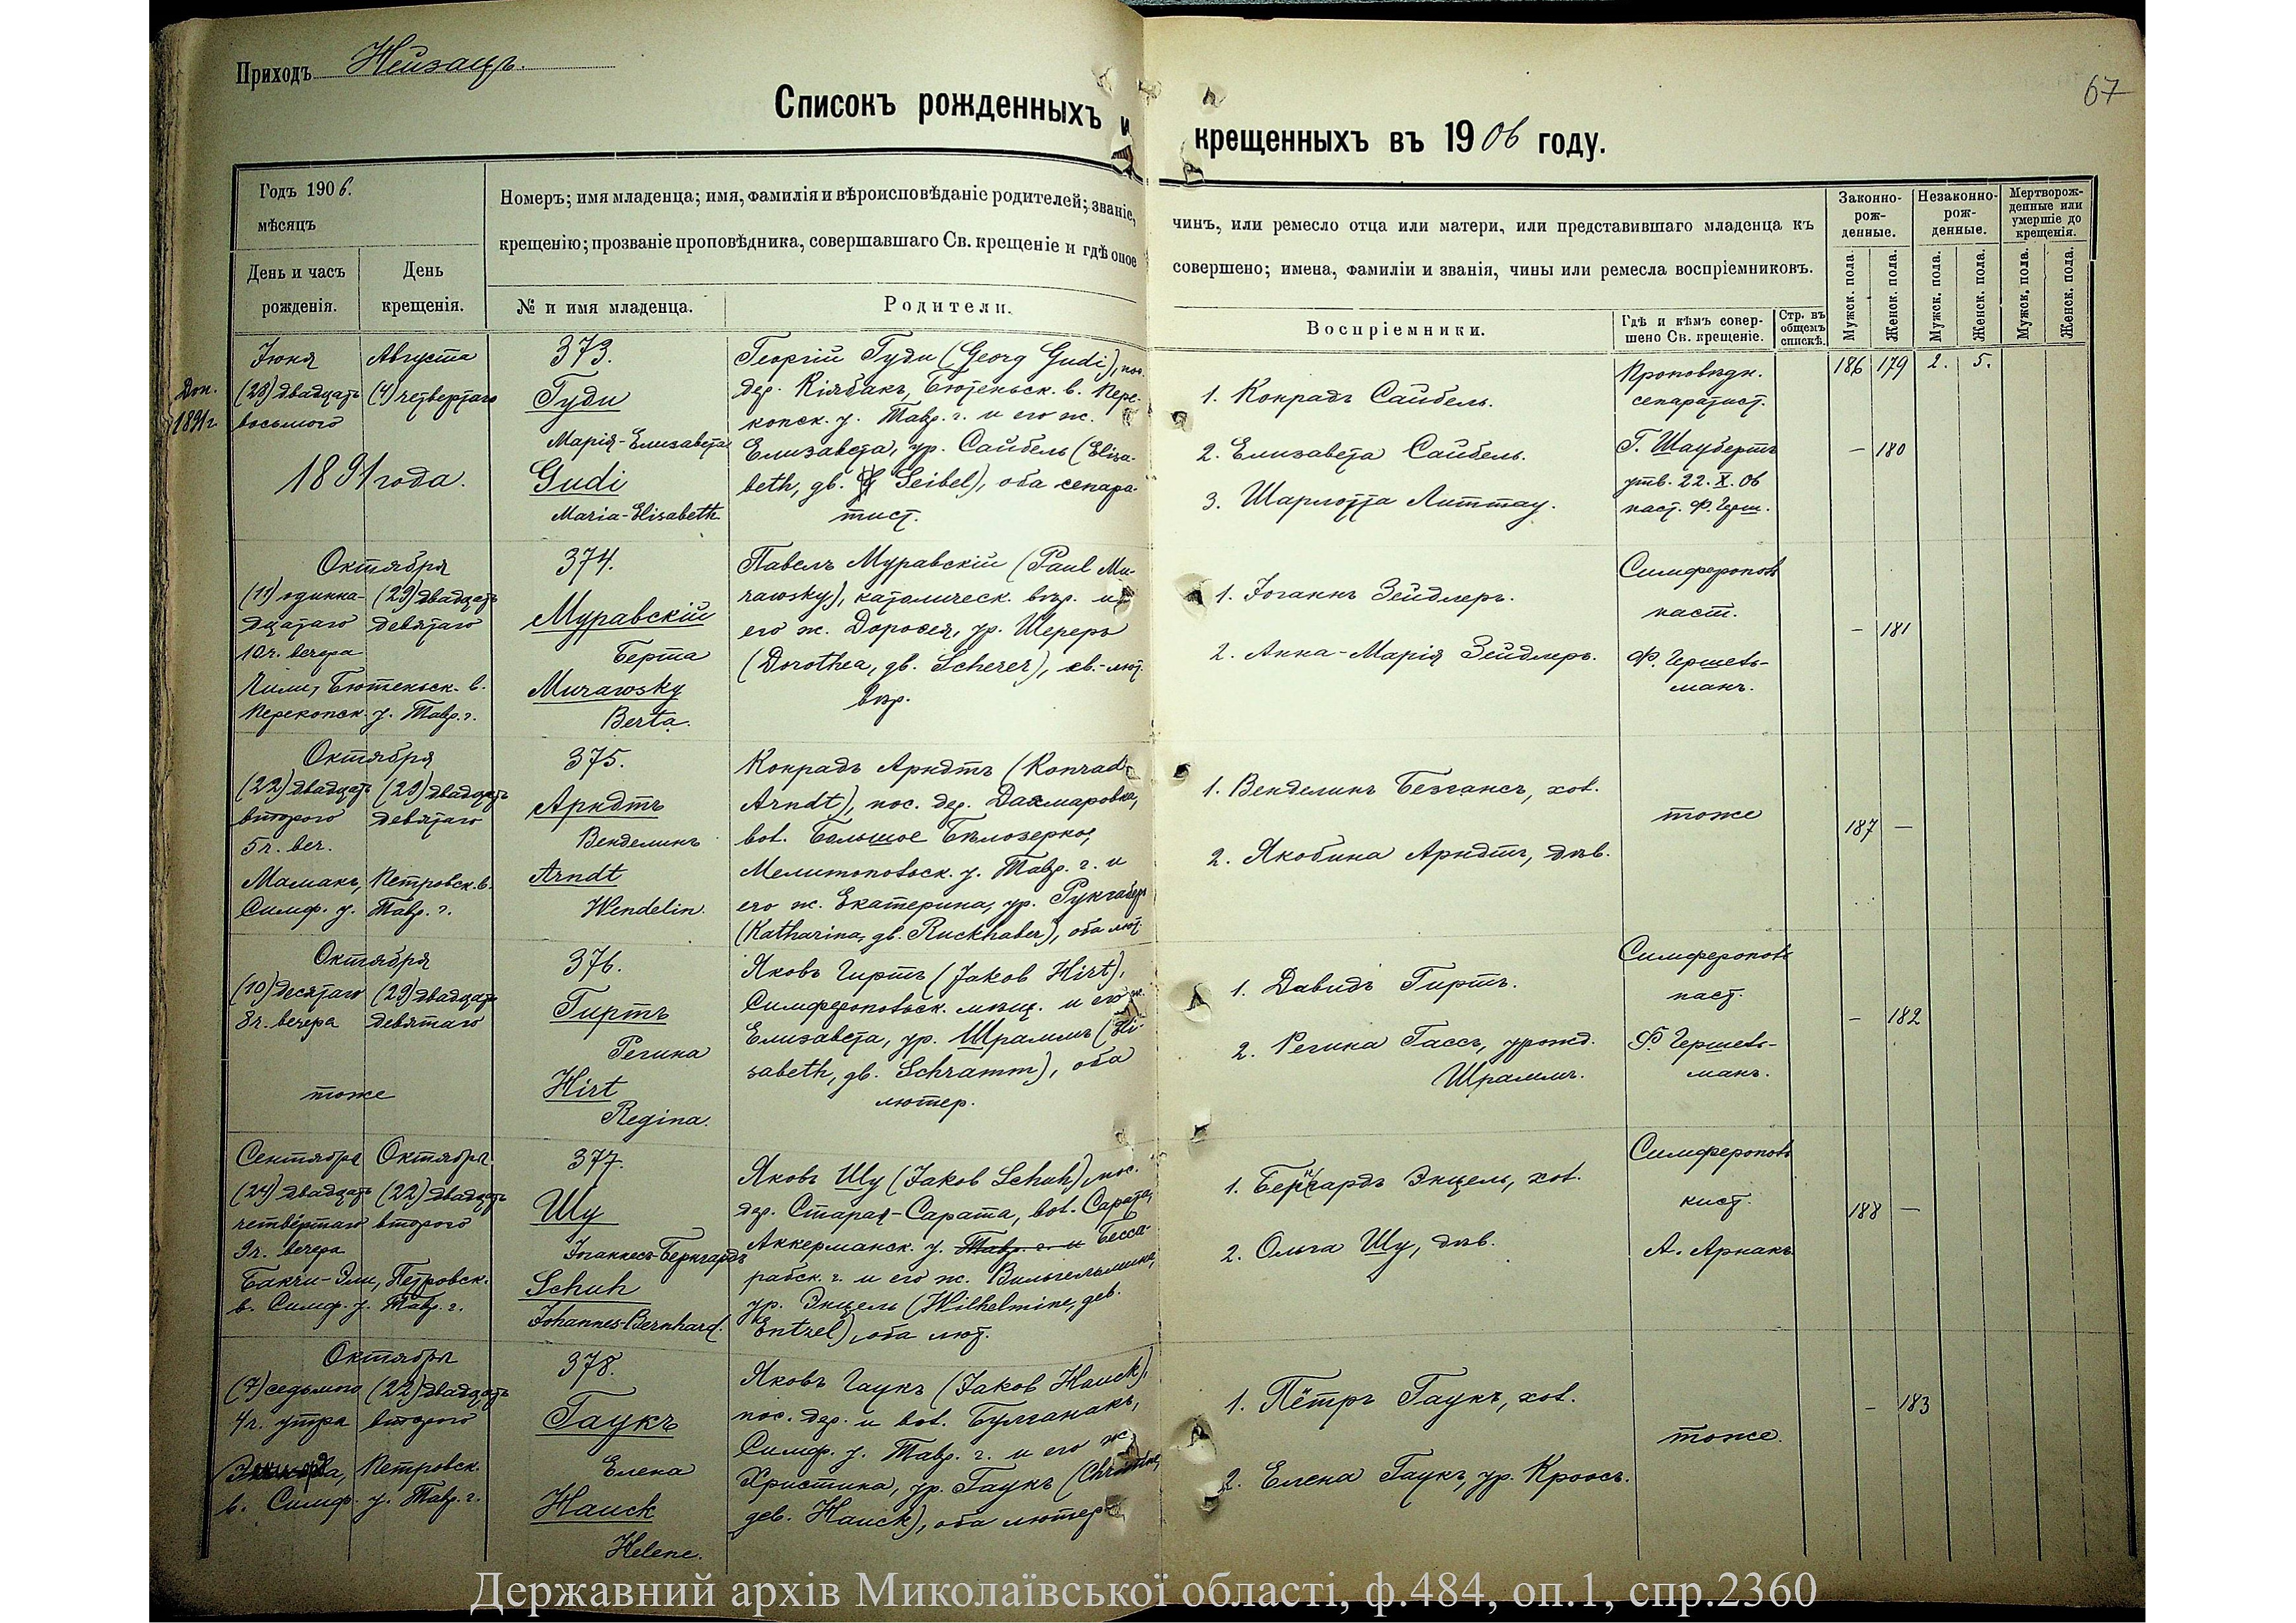 Приходъ Нейзацъ.
67
Списокъ рожденныхъ и крещенныхъ въ 1906 году.
Годъ 1906.
мѣсяцъ
День и часъ рожденія.
День крещенія.
Номеръ; имя младенца; имя, фамилія и вѣроисповѣданіе родителей; званіе,
чинъ, или ремесло отца или матери, или представившаго младенца къ
крещенію; прозваніе проповѣдника, совершавшаго Св. крещеніе и гдѣ оное
совершено; имена, фамиліи и званія, чины или ремесла воспріемниковъ.
№ и имя младенца.
Родители.
Воспріемники.
Гдѣ и кѣмъ совершено Св. крещеніе.
Стр. въ общемъ спискѣ.
Законно-рож-денные.
Незаконно-рож-денные.
Мертворож-денные или умершіе до крещенія.
Мужск. пола.
Женск. пола.
Мужск. пола.
Женск. пола.
Мужск. пола.
Женск. пола.
Доп.
1891 г.
Іюня
(28) двадцать
восьмого
Августа
(4) четвертаго
1891 года.
373.
Гуди
Марія-Елизавета
Gudi
Maria-Elisabeth
Георгій Гуди (Georg Gudi), пос.
дер. Кіябакъ, Бютеньск. в. Пере-
копск. у. Тавр. г. и его ж.
Елизавета, ур. Сайбель (Eliza-
beth, gb. Seibel), оба сепара-
тист.
1. Конрадъ Сайбель.
2. Елизавета Сайбель.
3. Шарлотта Литтау.
Проповѣдн.
сепаратист.
Г. Шаубертъ
утв. 22. X. 06
паст. Ф. Герш.
186 179 2. 5.
— 180
Октября
(11) одинна-
дцатаго
10 ч. вечера
(29) двадцать
девятаго
Чили, Бютеньск. в.
Перекопск. у. Тавр. г.
374.
Муравскій
Берта
Murawsky
Berta.
Павелъ Муравскій (Paul Mu-
rawsky), католическ. вѣр. и
его ж. Доротея, ур. Шереръ
(Dorothea, gb. Scherer), ев.-лют.
вѣр.
1. Іоганнъ Зейдлеръ.
2. Анна-Марія Зейдлеръ.
Симферопол.
паст.
Ф. Гершель-
манъ.
— 181
Октября
(22) двадцать
второго
5 ч. веч.
(29) двадцать
девятаго
Мамакъ, Петровск. в.
Симф. у. Тавр. г.
375.
Арндтъ
Венделинъ
Arndt
Wendelin.
Конрадъ Арндтъ (Konrad
Arndt), пос. дер. Дахмаровка,
вол. Большое Бѣлозерко,
Мелитопольск. у. Тавр. г. и
его ж. Екатерина, ур. Рукгаберъ
(Katharina, gb. Ruckhaber), оба лют.
1. Венделинъ Безгансъ, хол.
2. Якобина Арндтъ, дѣв.
тоже
187 —
Октября
(10) десятаго
8 ч. вечера
(29) двадцать
девятаго
тоже
376.
Гиртъ
Регина
Hirt
Regina.
Яковъ Гиртъ (Jakob Hirt),
Симферопольск. мѣщ. и его ж.
Елизавета, ур. Шраммъ (Eli-
sabeth, gb. Schramm), оба
лютер.
1. Давидъ Гиртъ.
2. Регина Гассъ, урожд.
Шраммъ.
Симферопол.
паст.
Ф. Гершель-
манъ.
— 182
Сентября
(24) двадцать
четвёртаго
9 ч. вечера
Октября
(22) двадцать
второго
Бакчи-Эли, Петровск.
в. Симф. у. Тавр. г.
377.
Шу
Іоганнесъ-Бернгардъ
Schuh
Johannes-Bernhard.
Яковъ Шу (Jakob Schuh), пос.
дер. Старая-Сарата, вол. Сарата,
Аккерманск. у. Тавр. г. и Бесса-
рабск. г. и его ж. Вильгельмина,
ур. Энцель (Wilhelmine, geb.
Entzel), оба лют.
1. Бернгардъ Энцель, хол.
2. Ольга Шу, дѣв.
Симферопол.
кист.
А. Арнакъ
188 —
Октября
(7) седьмого
4 ч. утра
(22) двадцать
второго
Петровск.
в. Симф. у. Тавр. г.
378.
Гаукъ
Елена
Hauck
Helene.
Яковъ Гаукъ (Jakob Hauck),
пос. дер. и вол. Булганакъ,
Симф. у. Тавр. г. и его ж.
Христина, ур. Гаукъ (Christine,
geb. Hauck), оба лютер.
1. Пётръ Гаукъ, хол.
2. Елена Гаукъ, ур. Кроосъ.
тоже.
— 183
Державний архів Миколаївської області, ф.484, оп.1, спр.2360